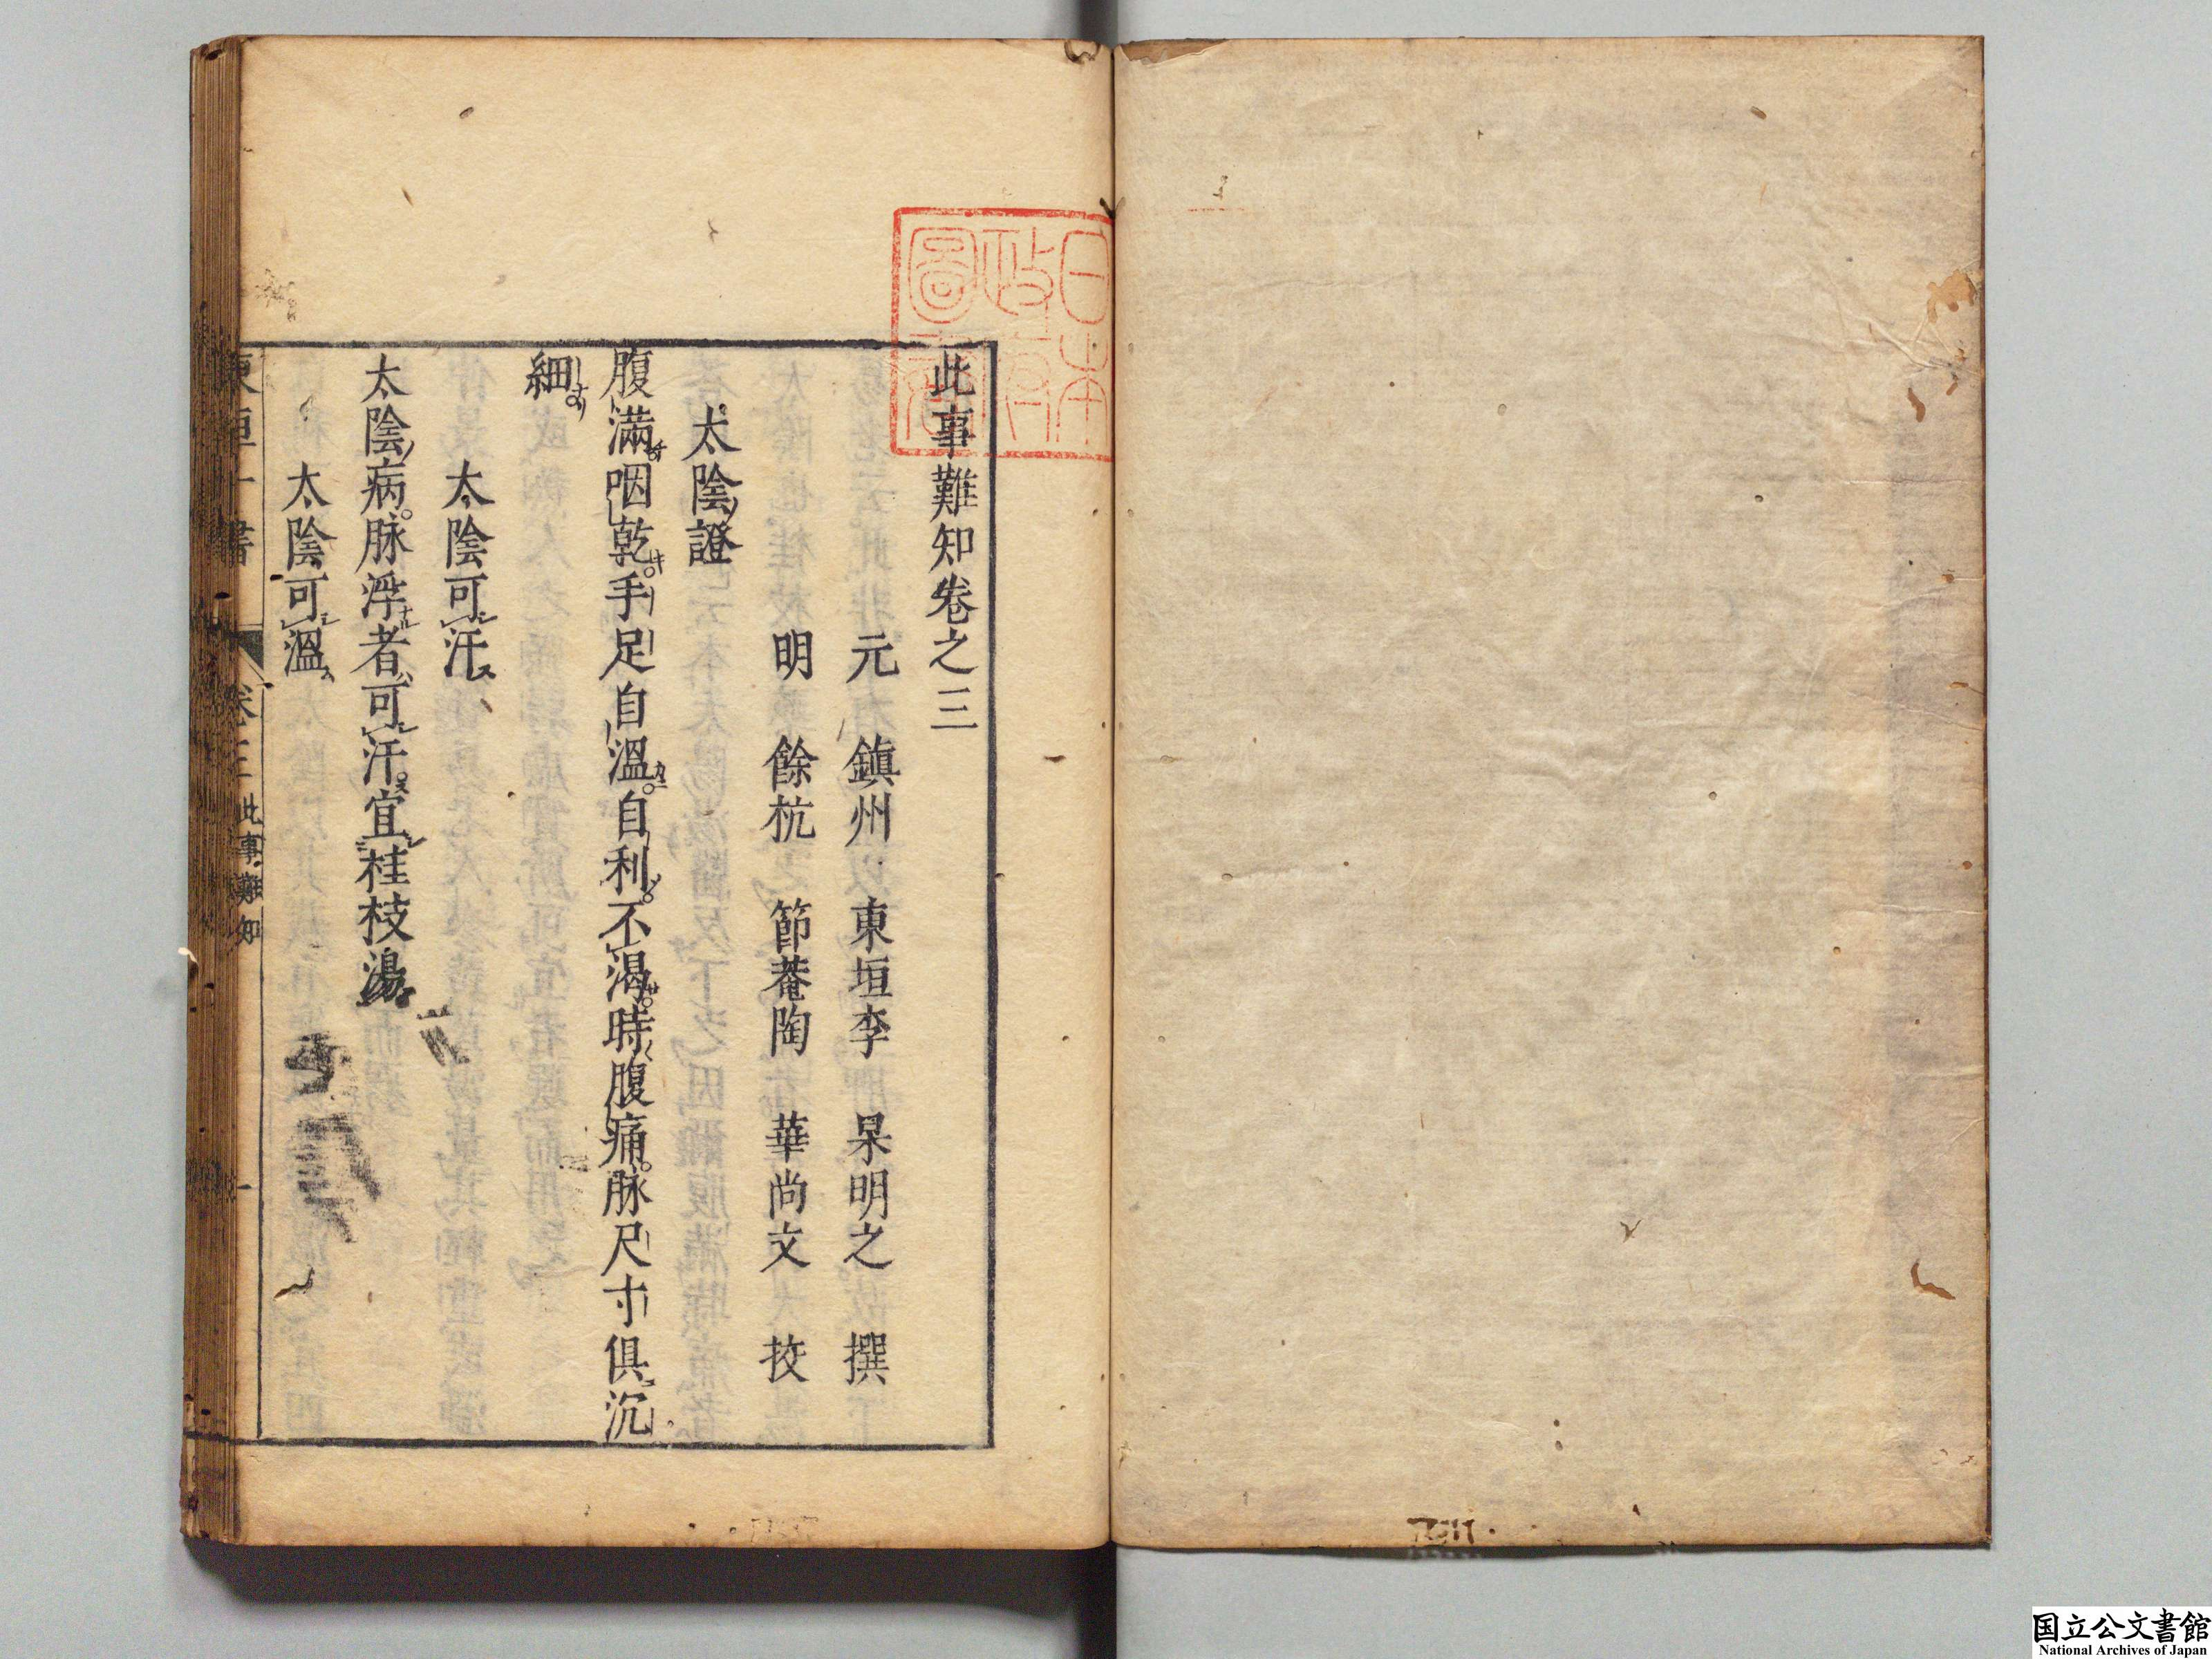 此事難知卷之三
元 鎮州 東垣李 杲明之 撰
明 餘杭 節菴陶 華尚文 挍
太陰證
腹滿咽乾手足自溫自利不渴時腹痛脉尺寸俱沉
細
太陰可汗
太陰病脉浮者可汗宜桂枝湯
太陰可溫
東垣十書 卷三 此事難知 一
日本
政府
圖書
国立公文書館
National Archives of Japan